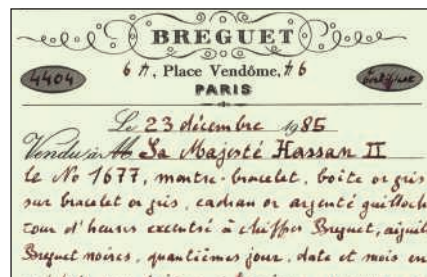 BREGUET
4404
6 A, Place Vendôme, A 6
Certificat
PARIS
Le 23 décembre 1985
Vendu à M Sa Majesté Hassan II
le No 1677, montre-bracelet, boîte or gris
sur bracelet or gris, cadran or argenté guilloch
tour d'heures excentré à chiffres Breguet, aiguil
Breguet noires, quantièmes jour, date et mois en